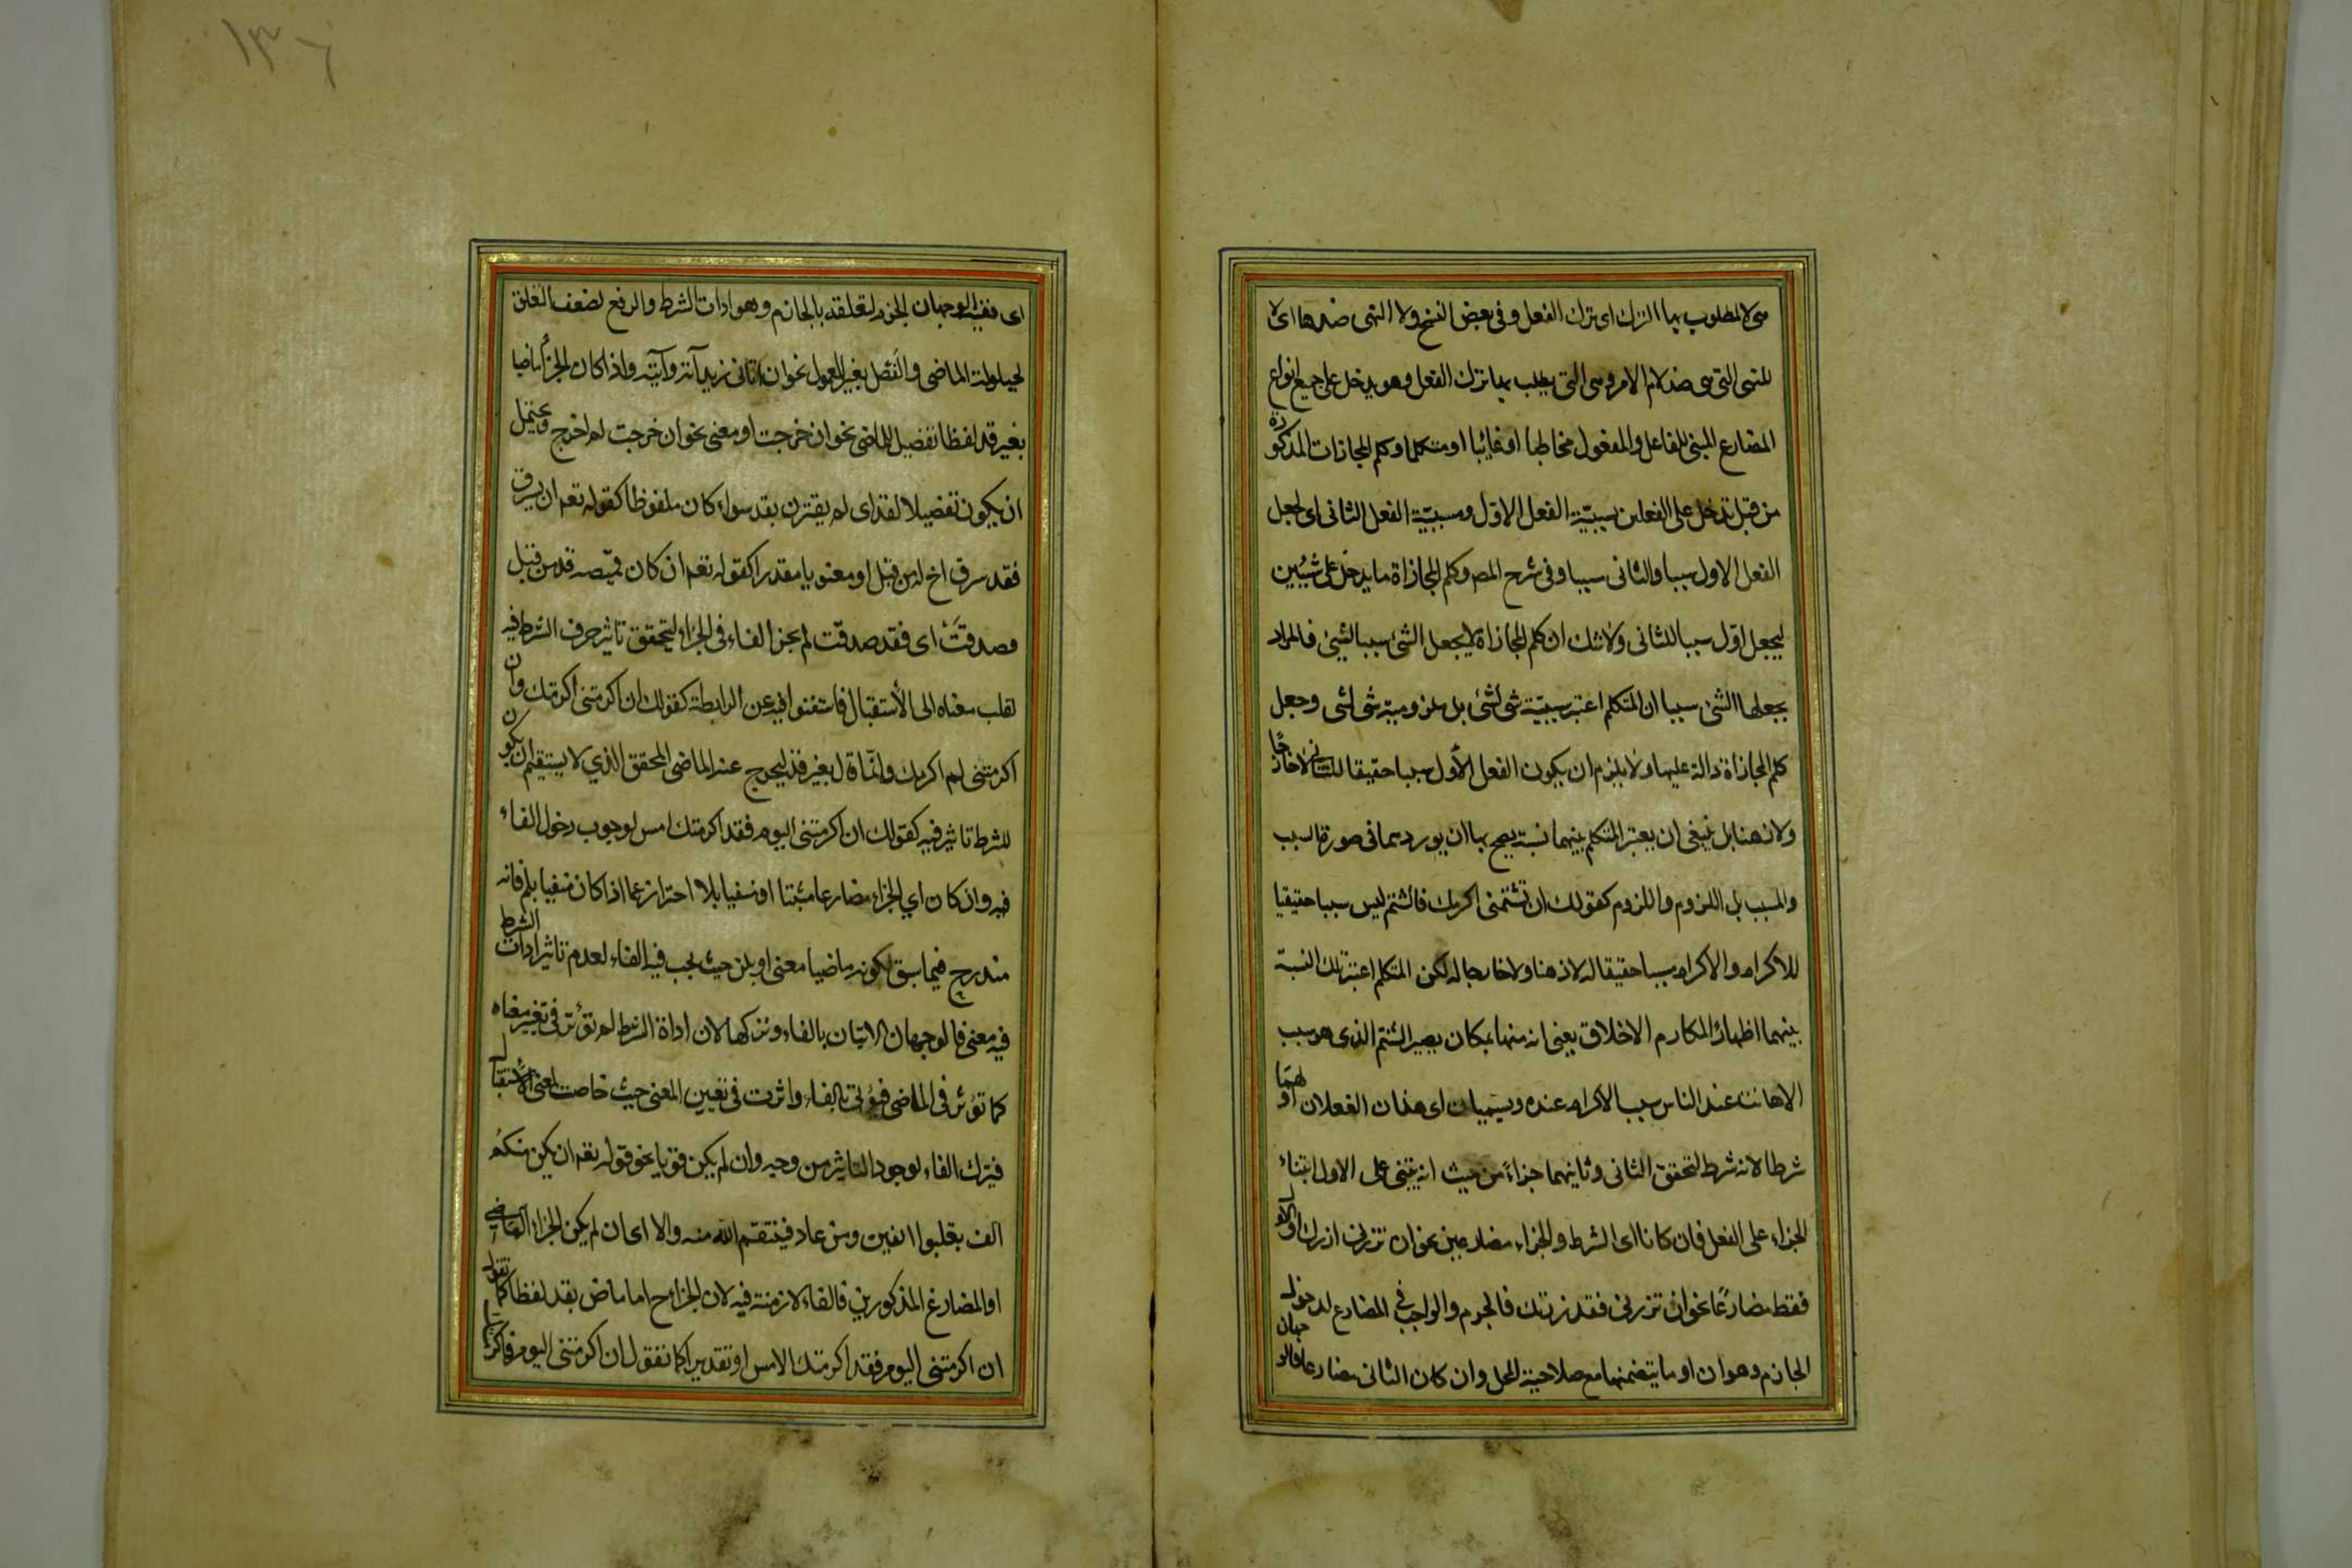 هى لا المطلوب بها الترك اى ترك الفعل وفى بعض النسخ ولا النهى ضدها اى لا
للنهى التى هى ضد لام الامر وهى التى يطلب بها ترك الفعل وهو يدخل على جميع انواع
المضارع المبنى للفاعل والمفعول مخاطبا او غائبا او متكلما وكلم المجازات المذكورة
من قبل تدخل على الفعلين لسببيّة الفعل الاوّل ومسببيّة الفعل الثانى اى لجعل
الفعل الاول سببا والثانى مسببا وفى شرح المص وكلم المجازاة ما يدخل على شيئين
ليجعل اوّل سببا للثانى ولا شك ان كلم المجازاة لا يجعل الشئ سببا لشئ فالمراد
بجعلها الشئ سببا ان المتكلم اعتبر سببيّة شئ لشئ بل ملزومية شئ لشئ وجعل
كلم المجازاة دالة عليها ولا يلزم ان يكون الفعل الأول سببا حقيقا للثانى لا خارجًا
ولا ذهنا بل ينبغى ان يعتبر المتكلم بينهما نسبة يصح بها ان يوردهما فى صورة السبب
والمسبب بل اللزوم واللزوم كقولك ان تشتمنى اكرمك فالشتم ليس سببا حقيقيا
للاكرام والاكرام سببا حقيقا له لا ذهنا ولا خارجا له لكن المتكلم اعتبر تلك النسبة
بينهما اظهارا لمكارم الاخلاق يعنى انه منها بمكان يصير الشتم الذى هو سبب
الاهانت عند الناس سبب الاكرام عنده ويسمّيان اى هذان الفعلان اولهما
شرطا لانه شرط لتحقق الثانى وثانيهما جزاءً من حيث انه يبتنى على الاول ابتناء
الجزاء على الفعل فان كانا اى الشرط والجزاء مضارعين نحو ان تزرنى ازرك او الاول
فقط مضارعًا نحو ان تزرنى فقد زرتك فالجزم والواجب فى المضارع لدخول
الجازم وهو ان او ما يتضمنها مع صلاحية المحل وان كان الثانى مضارعا فالوجهان
١٣٦
اى ففيه الوجهان الجزم لتعلقه بالجازم وهو ادات الشرط والرفع لضعف التعلق
لحيلولت الماضى والفصل بغير المعمول نحو ان اتانى زيد آته وآتيه واذا كان الجزأ ماضيا
بغير قد لفظا تفصيل للماضى نحو ان خرجت او معنى نحو ان خرجت لم اخرج ويحتمل
ان يكون تفصيلا لقد اى لم يقترن بقد سواء كان ملفوظا كقوله تعم ان يسرق
فقد سرق اخ له من قبل او معنويا مقدرا كقوله تعم ان كان قميصه قد من قبل
فصدقتْ اى فقد صدقت لم يجز الفاء فى الجزاء ليتحقق تاثير حرف الشرط فيه
لقلب معناه الى الأستقبال فاستغنوا فيه عن الرابطة كقولك ان اكرمتنى اكرمتك وان
اكرمتنى لم اكرمك وانّما قال بغير قد ليخرج عنه الماضى المحقق الذي لا يستقيم ان يكون
للشرط تاثير فيه كقولك ان اكرمتنى اليوم فقد اكرمتك امس لوجوب دخول الفاء
فيه وان كان اي الجزاء مضارعا مثبتا او منفيا بلا احتراز عما اذا كان منفيا بلم فانه
مندرج فيما سبق لكونه ماضيا معنى او بلن حيث يجب فيه الفاء لعدم تاثير ادات الشرط
فيه معنى فالوجهان الاتيان بالفاء وتركها لان اداة الشرط لم تؤثر فى تغيير معناه
كما تؤثر فى الماضى فيؤتى بالفاء واثرت فى تعيين المعنى حيث خاصت لمعنى الاستقبال
فيترك الفاء لوجود التاثير من وجه وان لم يكن قويا نحو قوله تعم ان يكن منكم
الف يغلبوا الفين ومن عاد فينتقم الله منه والا اى ان لم يكن الجزاء الماضى
او المضارع المذكورين فالفاء لازمة فيه لان الجزاء ح اما ماض بقد لفظا كما تقول
ان اكرمتنى اليوم فقد اكرمتك الامس او تقديرا كما تقول ان اكرمتنى اليوم